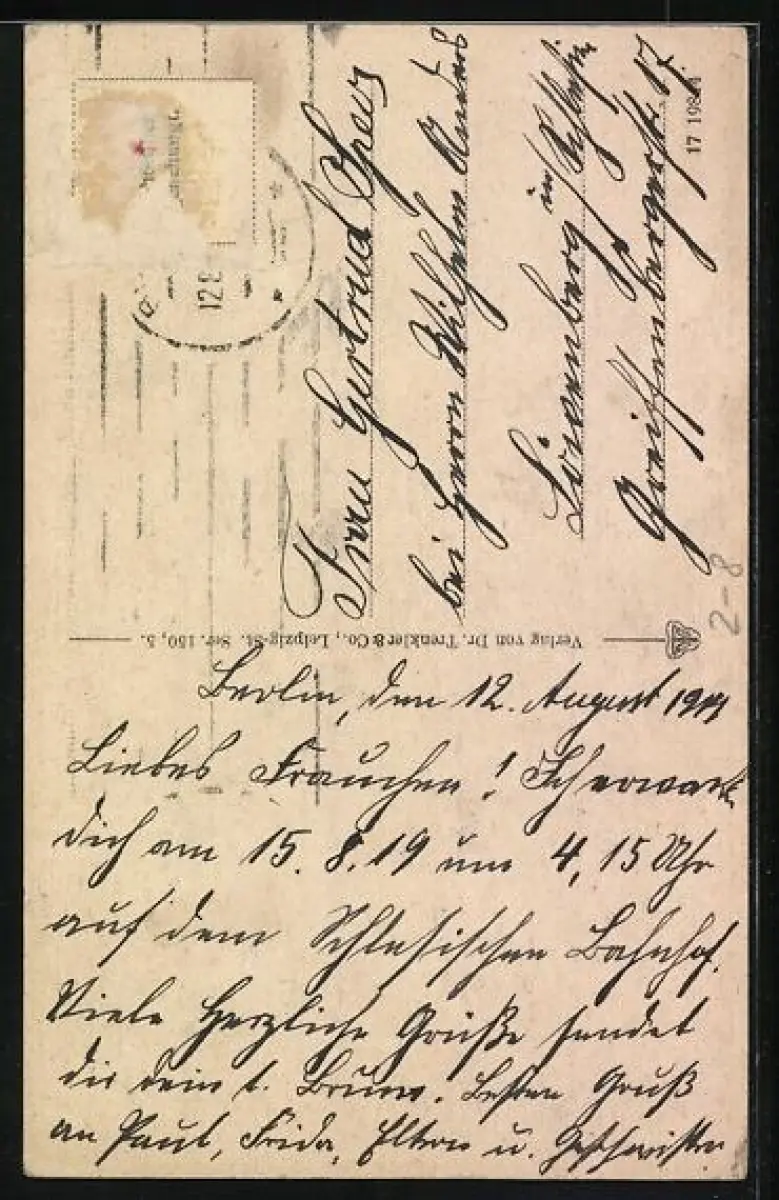 Berlin, den 12. August 1919
Liebes Frauchen! Ich erwarte
dich am 15.8.19 um 4,15 Uhr
auf dem Schlesischen Bahnhof.
Viele Herzliche Grüße sendet
dir dein l. Bruno. Besten Gruß
an Paul, Frida, Eltern u. Geschwister
Verlag von Dr. Trenkler & Co., Leipzig-St. Ser. 150, 5.
Frau Gertrud
bei Herrn Wilhelm
Löwenberg in Schlesien
Greiffenbergerstr. 17.
12 8
2-8